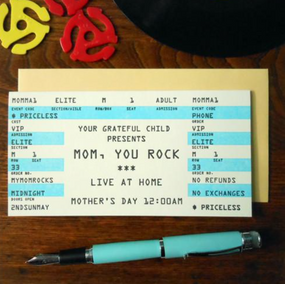 MOMMA1 ELITE M 1 ADULT MOMMA1
EVENT CODE SECTION/AISLE ROW/BOX SEAT ADMISSION EVENT CODE
* PRICELESS
COST
VIP
ADMISSION
ELITE
SECTION
M 1
ROW SEAT
33
ORDER NO.
MYMOMROCKS
MIDNIGHT
DOORS OPEN
2NDSUNMAY
YOUR GRATEFUL CHILD
PRESENTS
MOM, YOU ROCK
***
LIVE AT HOME
MOTHER'S DAY 12:00AM
PHONE
ORDER
VIP
ADMISSION
ELITE
SECTION
M 1
ROW SEAT
33
ORDER NO.
NO REFUNDS
NO EXCHANGES
* PRICELESS